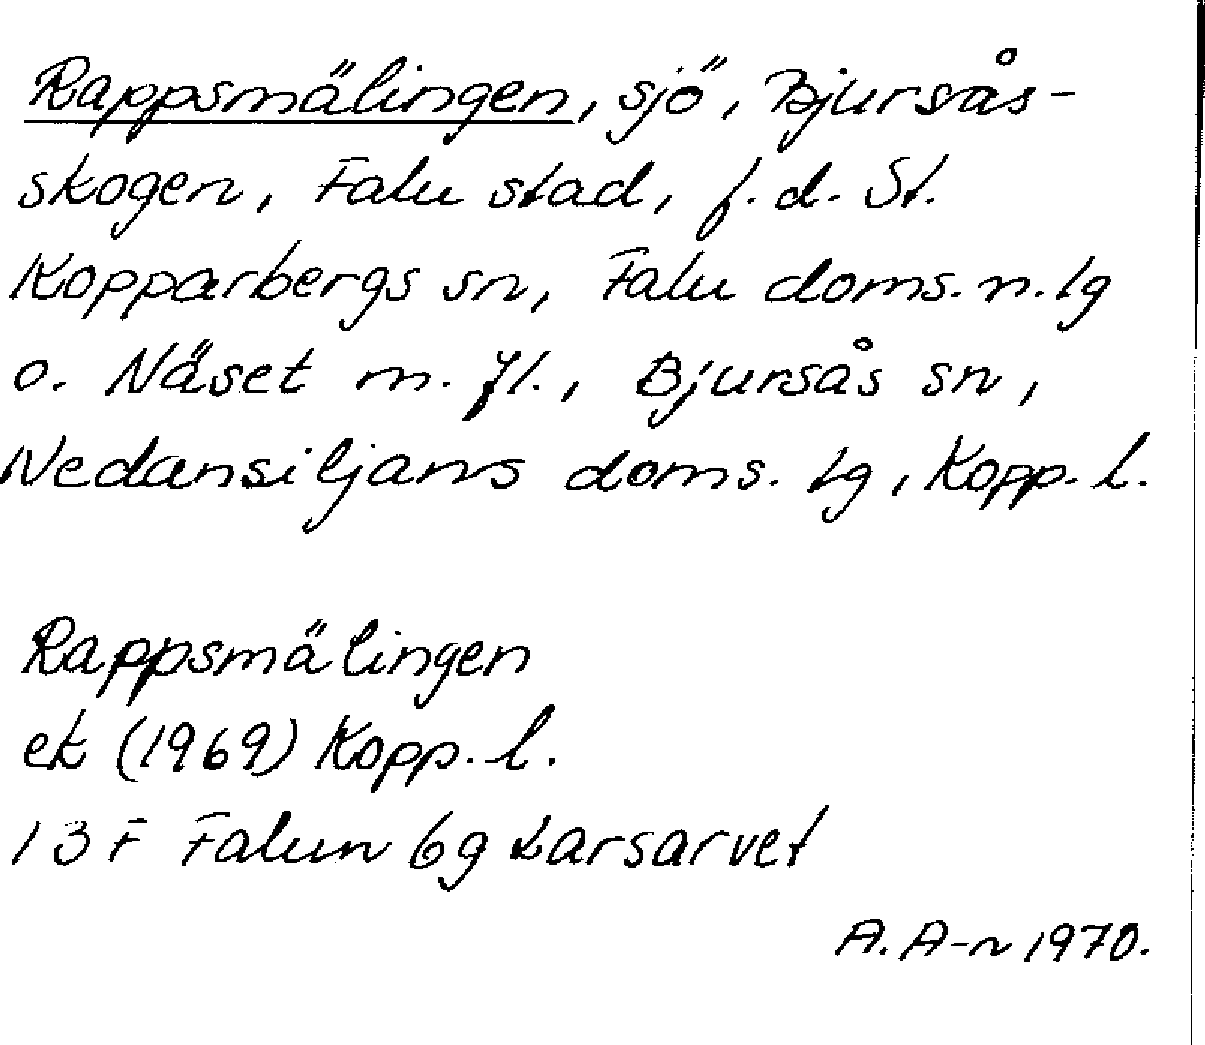 Rappsmälingen, sjö, Bjursås-
skogen, Falu stad, f.d. St.
Kopparbergs sn, Falu doms.n.tg
o. Näset m.fl., Bjursås sn,
Nedansiljans doms. tg, Kopp.l.
Rappsmälingen
ek (1969) Kopp.l.
13F Falun 6g Larsarvet
A.A-n 1970.